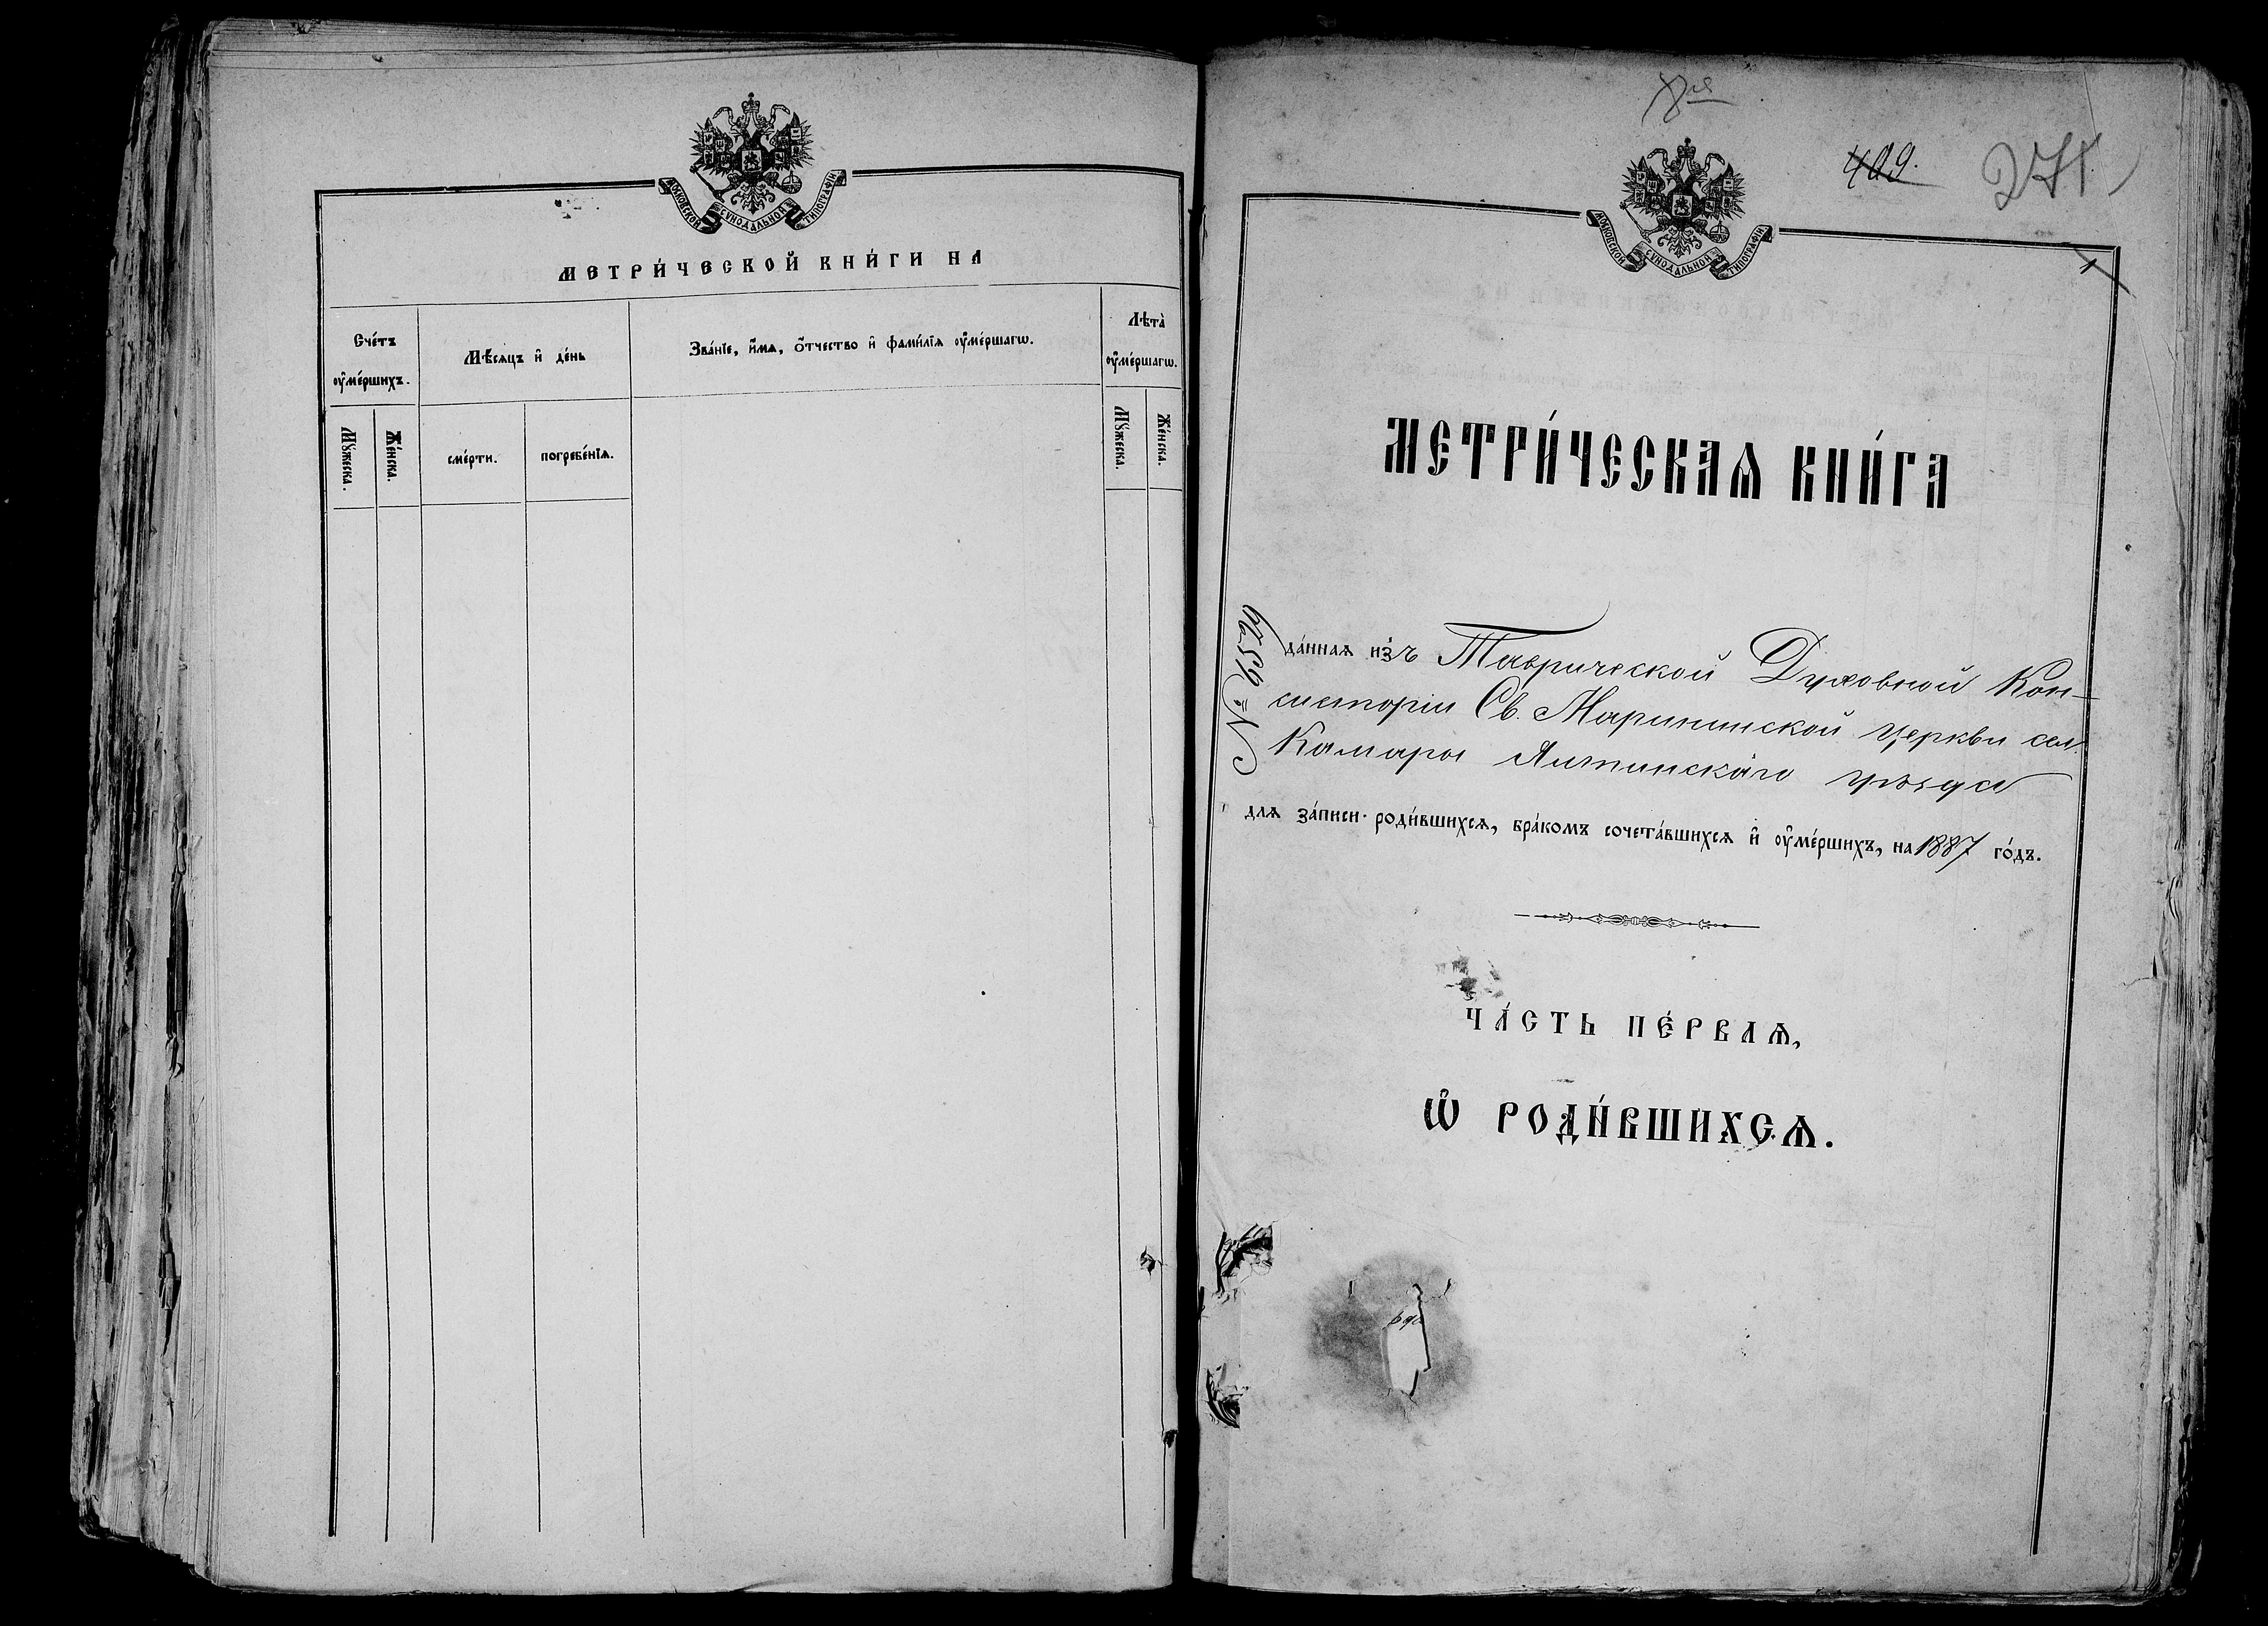 МОСКОВСКОЙ СѴНОДАЛЬНОЙ ТИПОГРАФІИ
МЕТРИ́ЧЕСКОЙ КНИ́ГИ НА
Сче́тъ ᲂу҆ме́ршихъ.
Мѣ́сяцъ и҆ де́нь
Зва́нїе, и҆́мѧ, ѻ҆́тчество и҆ фами́лїѧ ᲂу҆ме́ршагѡ.
Лѣта̀ ᲂу҆ме́ршагѡ.
Мꙋ́жеска.
Же́нска.
сме́рти.
погребе́нїѧ.
Мꙋ́жеска.
Же́нска.
409.
271.
МОСКОВСКОЙ СѴНОДАЛЬНОЙ ТИПОГРАФІИ
1
МЕТРИ́ЧЕСКАѦ КНИ́ГА
№ 6529
да́ннаѧ и҆зъ Таврической Духовной Кон-
систоріи Св. Марининской церкви сел.
Камары Ялтинскаго уѣзда
длѧ за́писи роди́вшихсѧ, бра́комъ сочета́вшихсѧ и҆ ᲂу҆ме́ршихъ, на 1887 го́дъ.
ЧА́СТЬ ПЕ́РВАѦ,
Ѡ҆ РОДИ́ВШИХСѦ.